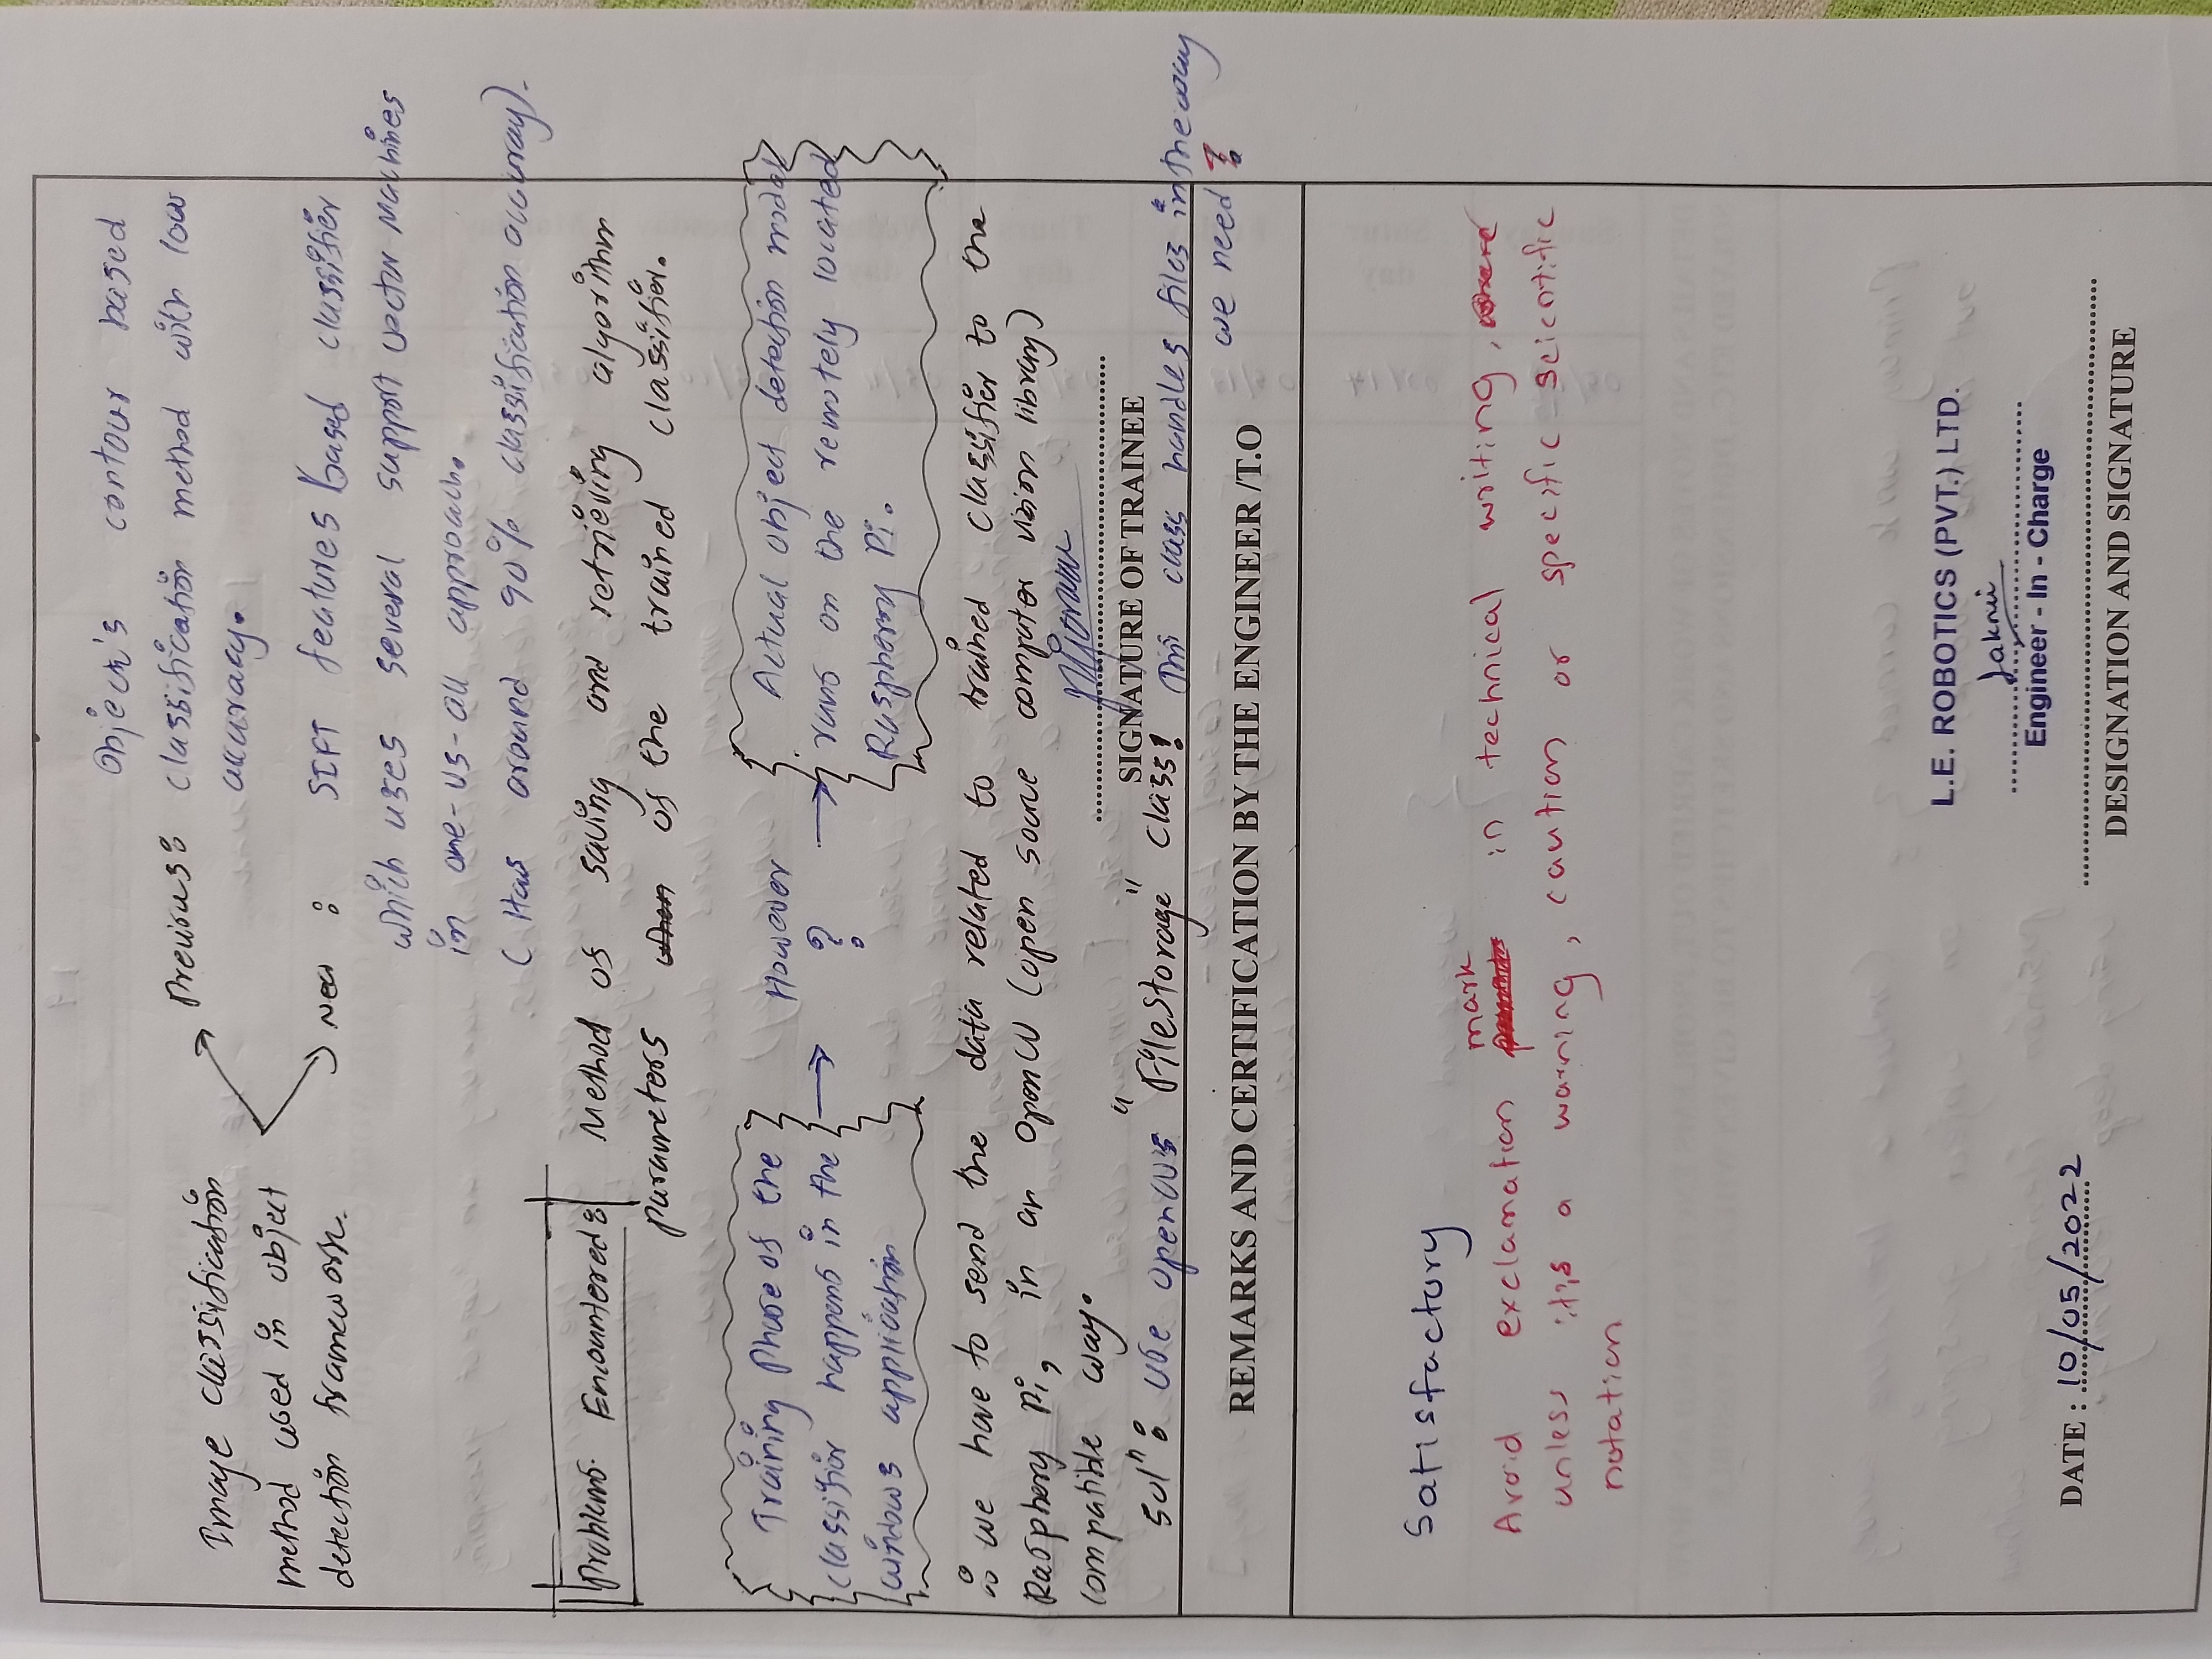 Object's contour based
Previous: classification method with low
accuracy.
Image classification
method used in object
detection framework.
New : SIFT features based classifier
which uses several support vector Machines
in one-vs-all approach.
( Has around 90% classification accuracy).
Problems Encountered: Method of saving and retrieving algorithm
parameters when of the trained classifier.
Training Phase of the
classifier happens in the
windows application
However
?
Actual object detection modal
runs on the remotely located
Raspberry Pi.
∴ we have to send the data related to trained classifier to the
Raspbery Pi, in an OpenCV (open source computer vision library)
compatible way.
SIGNATURE OF TRAINEE
Solⁿ: Use OpenCV's "FileStorage" class! This class handles files in the way
we need !
REMARKS AND CERTIFICATION BY THE ENGINEER /T.O
Satisfactory
Avoid exclamation mark in technical writing,
unless it's a warning, caution or specific scientific
notation
L.E. ROBOTICS (PVT.) LTD.
Engineer - In - Charge
DATE : 10/05/2022
DESIGNATION AND SIGNATURE